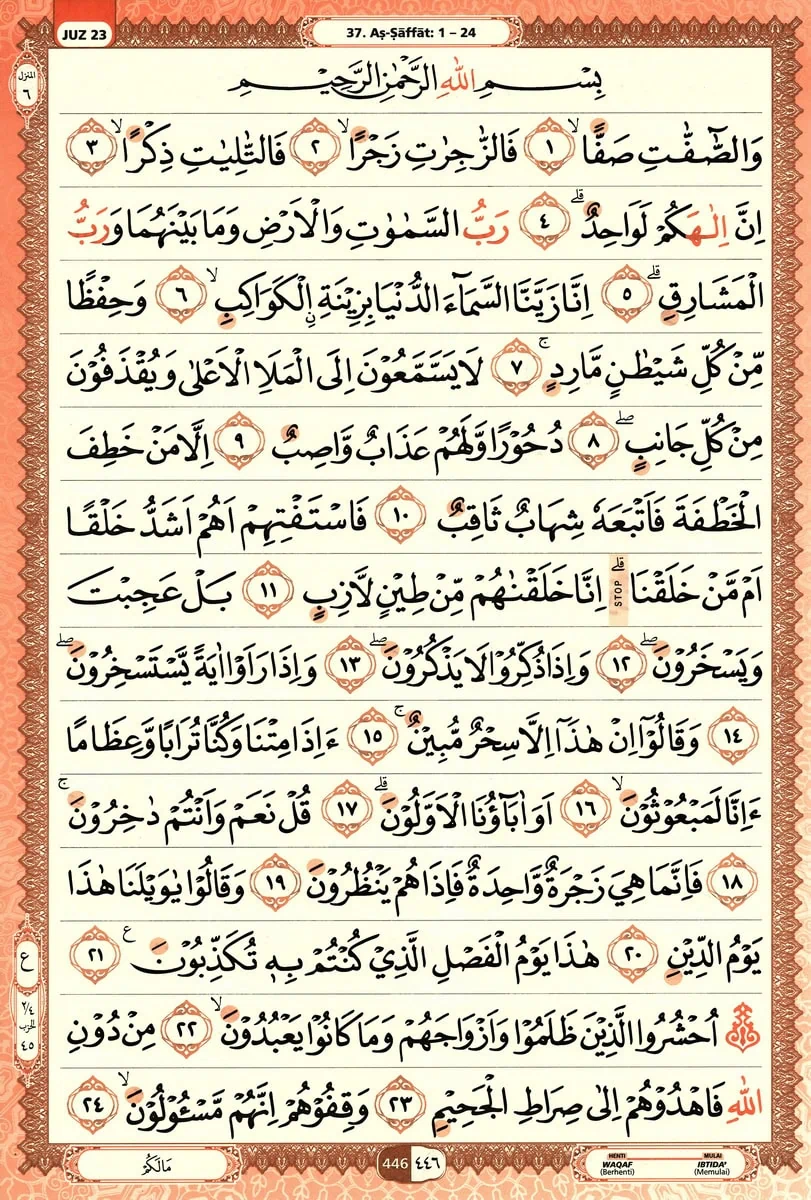 JUZ 23
37. Aṣ-Ṣāffāt: 1 – 24
المنزل
٦
بِسْمِ اللهِ الرَّحْمٰنِ الرَّحِيْمِ
وَالصّٰۤفّٰتِ صَفًّاۙ ١ فَالزّٰجِرٰتِ زَجْرًاۙ ٢ فَالتّٰلِيٰتِ ذِكْرًاۙ ٣
اِنَّ اِلٰهَكُمْ لَوَاحِدٌۗ ٤ رَبُّ السَّمٰوٰتِ وَالْاَرْضِ وَمَا بَيْنَهُمَا وَرَبُّ
الْمَشَارِقِۗ ٥ اِنَّا زَيَّنَّا السَّمَاۤءَ الدُّنْيَا بِزِيْنَةِ ِۨالْكَوَاكِبِۙ ٦ وَحِفْظًا
مِّنْ كُلِّ شَيْطٰنٍ مَّارِدٍۚ ٧ لَا يَسَّمَّعُوْنَ اِلَى الْمَلَاِ الْاَعْلٰى وَيُقْذَفُوْنَ
مِنْ كُلِّ جَانِبٍۖ ٨ دُحُوْرًا وَّلَهُمْ عَذَابٌ وَّاصِبٌ ٩ اِلَّا مَنْ خَطِفَ
الْخَطْفَةَ فَاَتْبَعَهٗ شِهَابٌ ثَاقِبٌ ١٠ فَاسْتَفْتِهِمْ اَهُمْ اَشَدُّ خَلْقًا
اَمْ مَّنْ خَلَقْنَاۗ STOP اِنَّا خَلَقْنٰهُمْ مِّنْ طِيْنٍ لَّازِبٍ ١١ بَلْ عَجِبْتَ
وَيَسْخَرُوْنَۖ ١٢ وَاِذَا ذُكِّرُوْا لَا يَذْكُرُوْنَۖ ١٣ وَاِذَا رَاَوْا اٰيَةً يَّسْتَسْخِرُوْنَۖ
١٤ وَقَالُوْٓا اِنْ هٰذَآ اِلَّا سِحْرٌ مُّبِيْنٌۚ ١٥ ءَاِذَا مِتْنَا وَكُنَّا تُرَابًا وَّعِظَامًا
ءَاِنَّا لَمَبْعُوْثُوْنَۙ ١٦ اَوَاٰبَاۤؤُنَا الْاَوَّلُوْنَۗ ١٧ قُلْ نَعَمْ وَاَنْتُمْ دٰخِرُوْنَۚ
١٨ فَاِنَّمَا هِيَ زَجْرَةٌ وَّاحِدَةٌ فَاِذَا هُمْ يَنْظُرُوْنَ ١٩ وَقَالُوْا يٰوَيْلَنَا هٰذَا
يَوْمُ الدِّيْنِ ٢٠ هٰذَا يَوْمُ الْفَصْلِ الَّذِيْ كُنْتُمْ بِهٖ تُكَذِّبُوْنَ ࣖ ٢١
اُحْشُرُوا الَّذِيْنَ ظَلَمُوْا وَاَزْوَاجَهُمْ وَمَا كَانُوْا يَعْبُدُوْنَۙ ٢٢ مِنْ دُوْنِ
اللهِ فَاهْدُوْهُمْ اِلٰى صِرَاطِ الْجَحِيْمِ ٢٣ وَقِفُوْهُمْ اِنَّهُمْ مَّسْـُٔوْلُوْنَۙ ٢٤
ع
٢/٤
الحزب
٤٥
مَالَكُمْ
446 ٤٤٦
HENTI WAQAF (Berhenti)
MULAI IBTIDA' (Memulai)